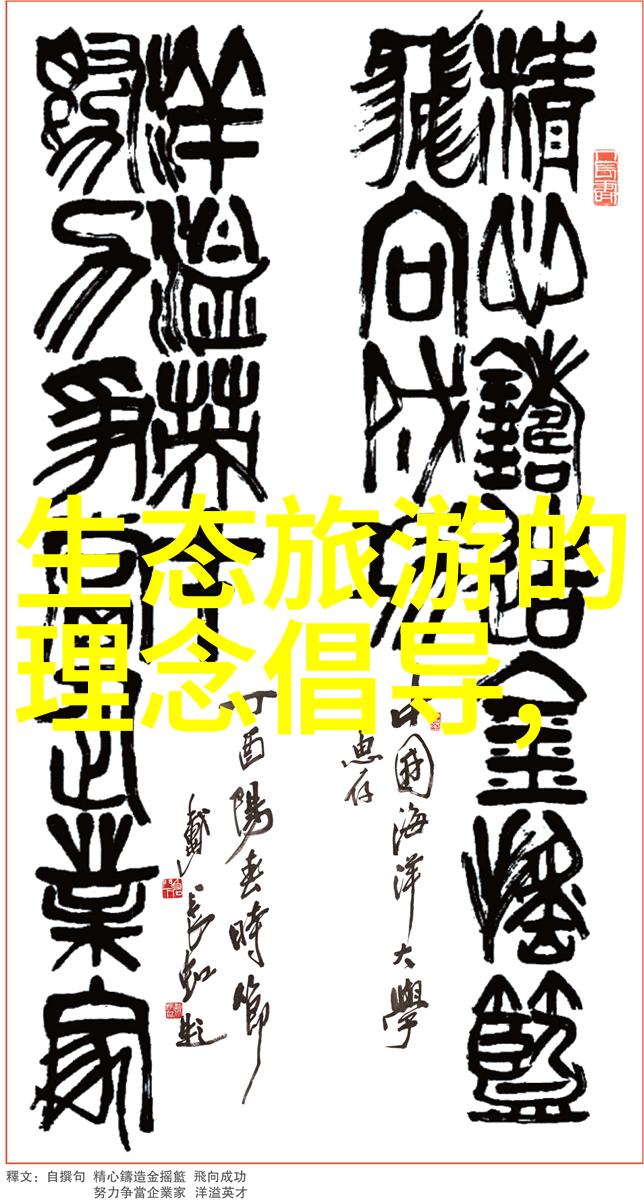 精心鑄造金摇籃
飛向成功
中国海洋大學
惠存
洋溢英才
努力争當企業家
丁酉陽春時節
戴長虹題
生态旅游的
理念倡导,
釋文：自撰句 精心鑄造金摇籃 飛向成功
努力争當企業家 洋溢英才